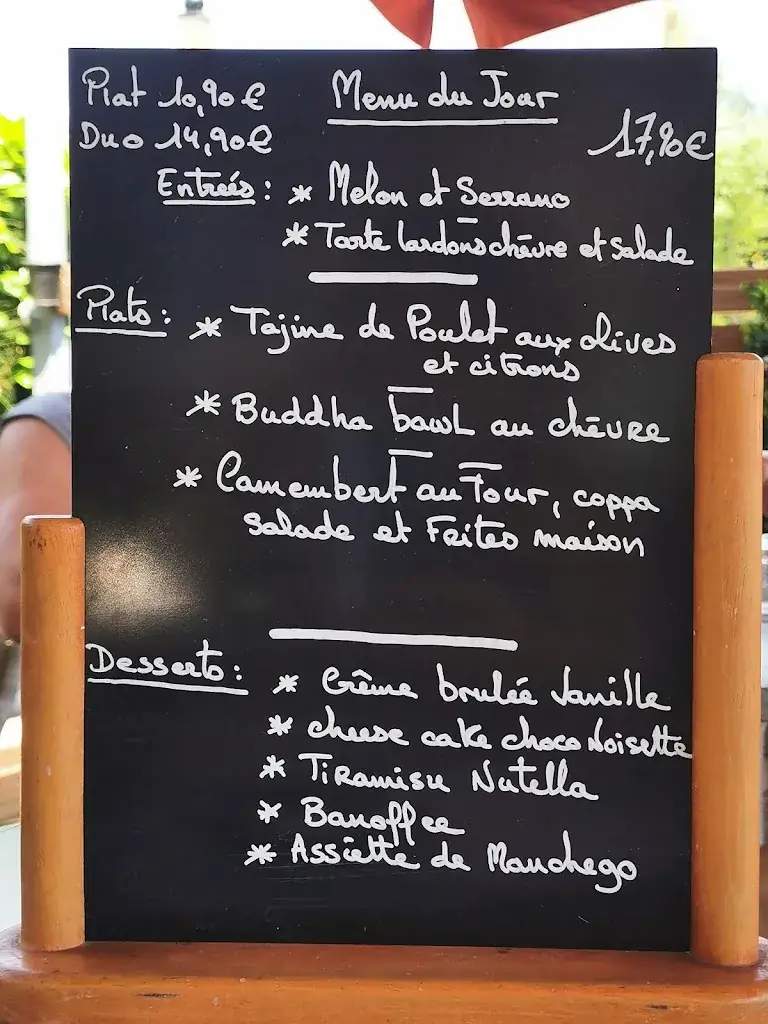 Plat 10,90€
Menu du Jour
Duo 14,90€
17,90€
Entrées: * Melon et Serrano
* Tarte lardons chèvre et salade
Plats: * Tajine de Poulet aux olives
et citrons
* Buddha bowl au chèvre
* Camembert au Four, coppa
salade et Frites maison
Desserts: * Crême brulée Vanille
* cheese cake choco Noisette
* Tiramisu Nutella
* Banoffee
* Assiette de Manchego